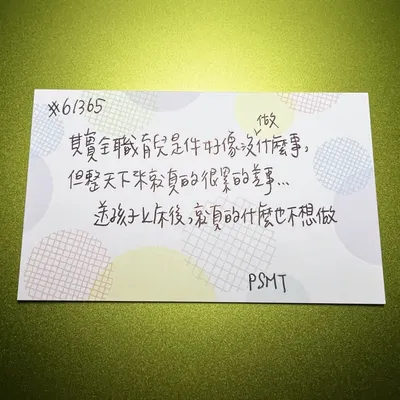 ※61365
其實全職育兒是件好像沒做什麼事，
但整天下來卻真的很累的差事…
送孩子上床後，就真的什麼也不想做
PSMT